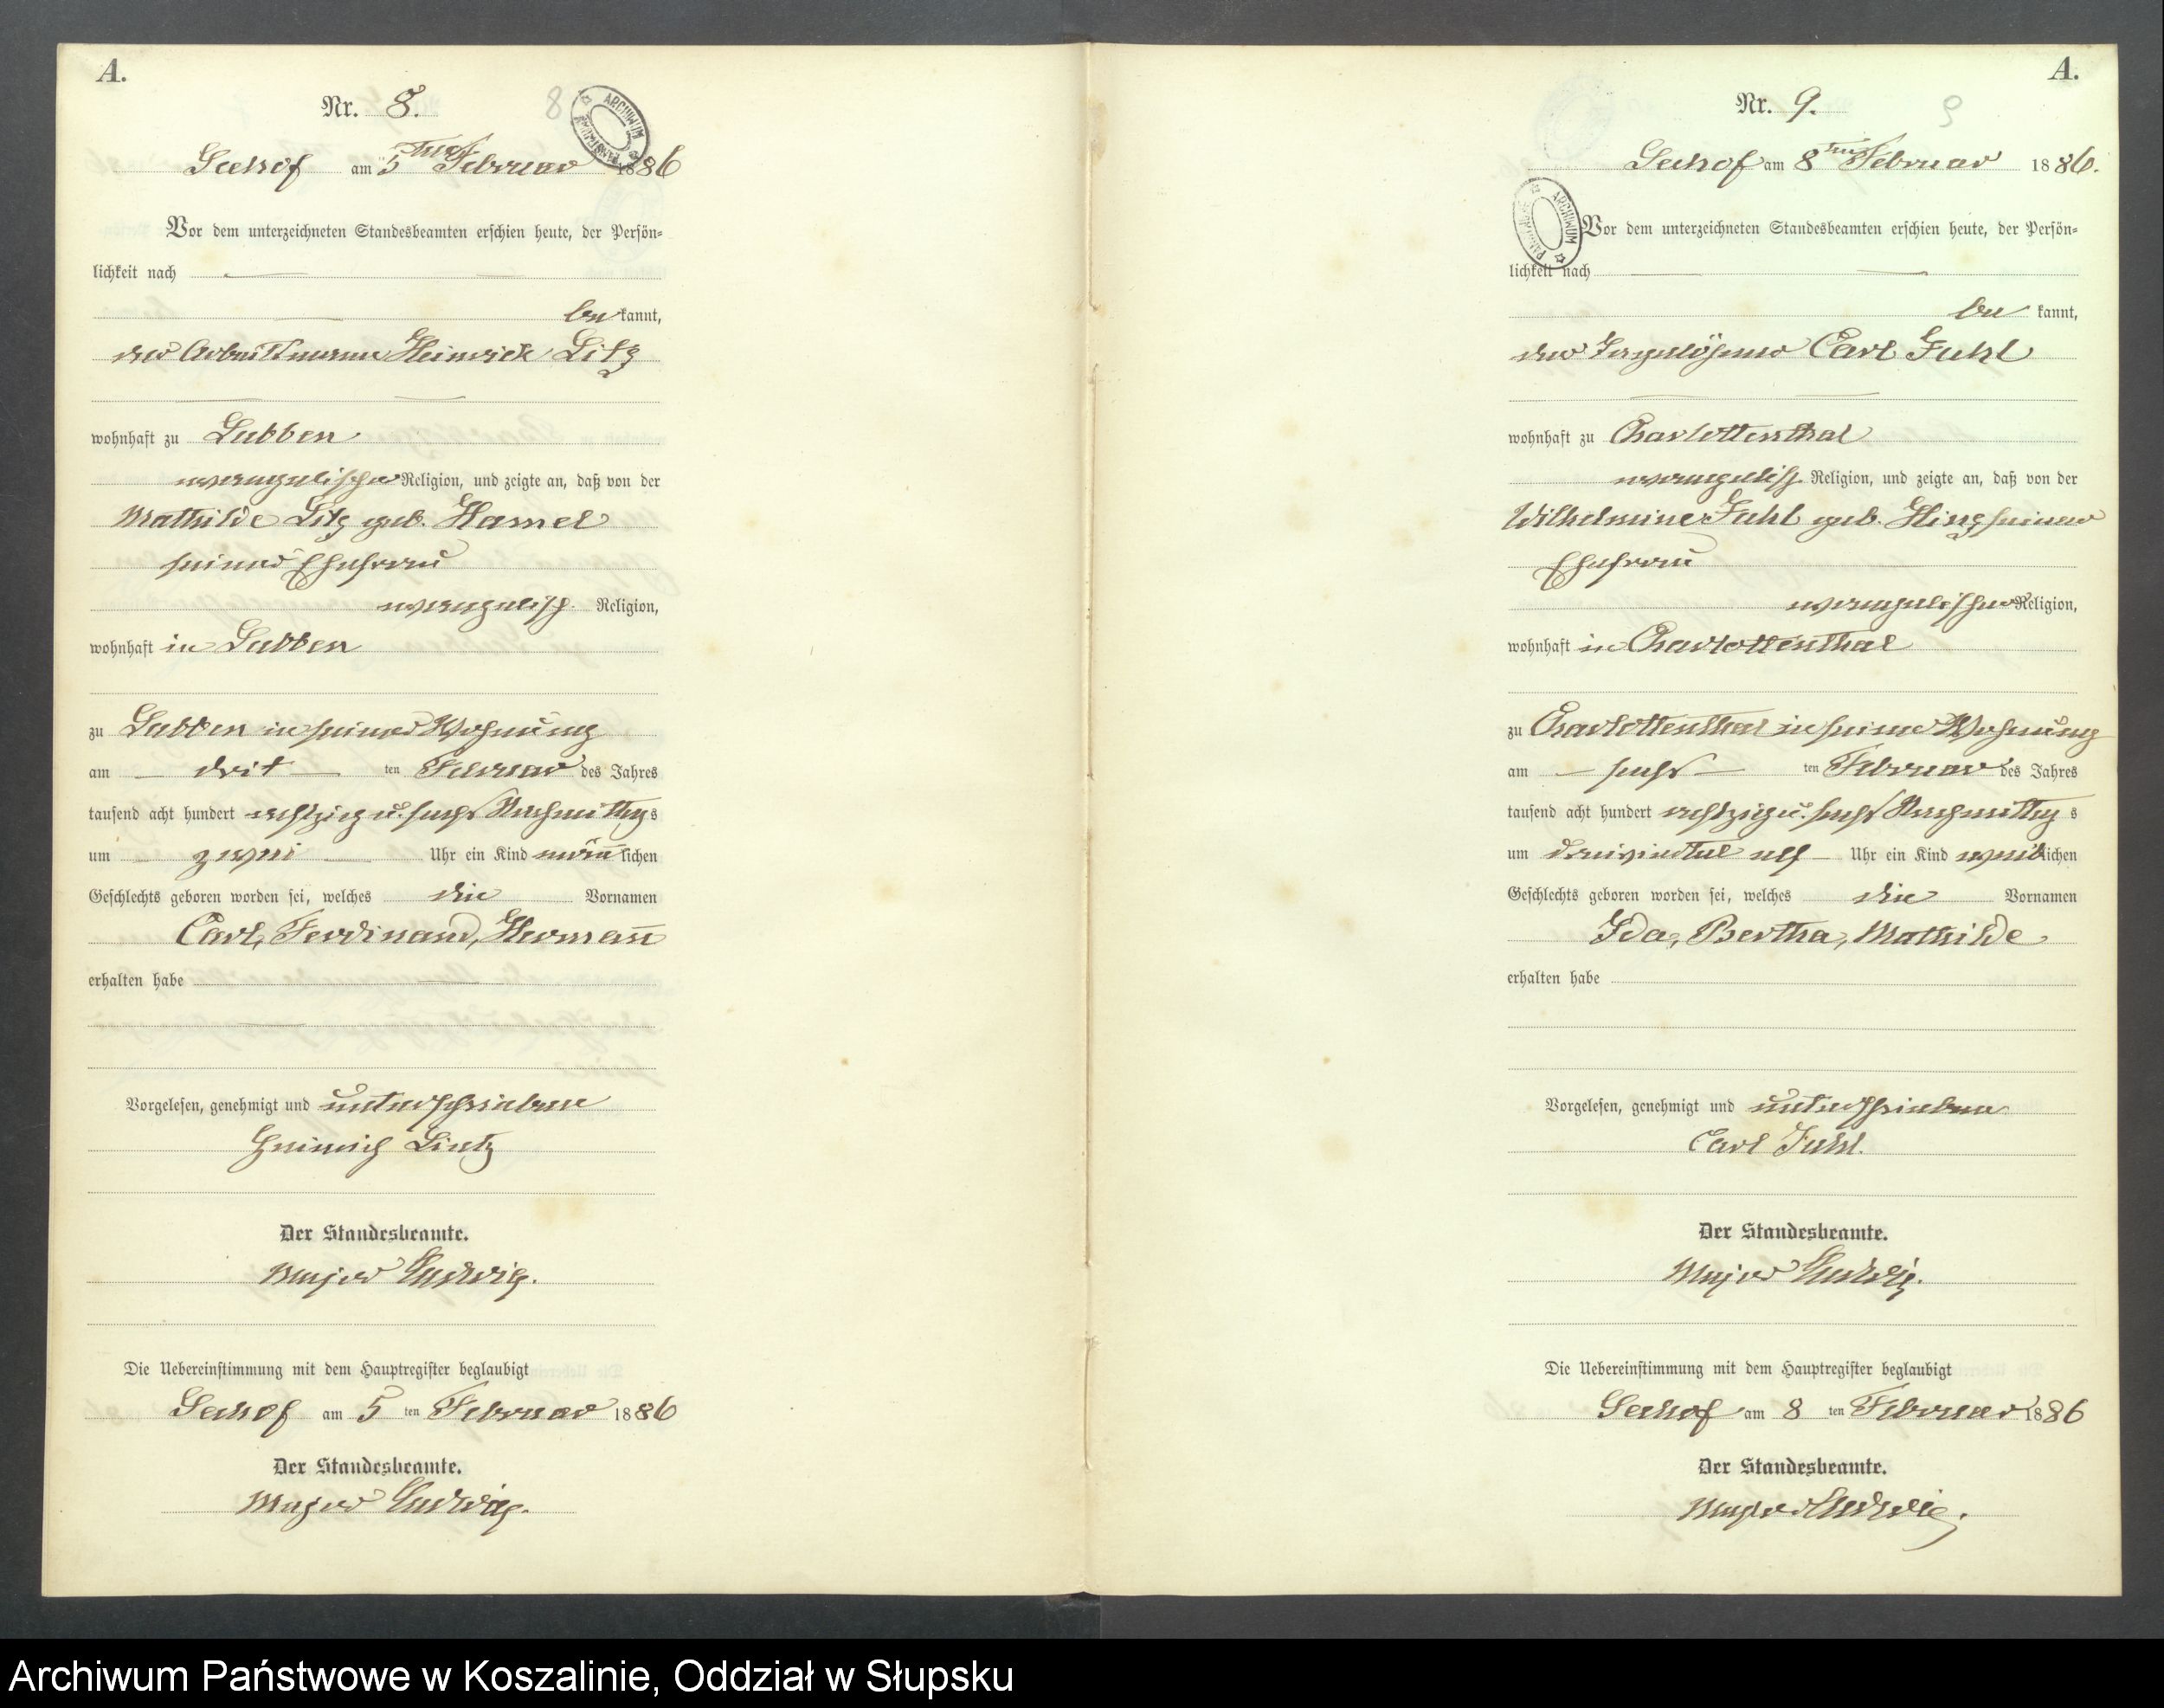 A.
Nr. 8.
8
ARCHIWUM PAŃSTWOWE
Seehof am 5ten Februar 1886
Vor dem unterzeichneten Standesbeamten erschien heute, der Persön=
lichkeit nach
bekannt,
der Arbeitsmann Heinrich Litz
wohnhaft zu Lubben
evangelischer Religion, und zeigte an, daß von der
Mathilde Litz geb. Hamel
seiner Ehefrau
evangelisch. Religion,
wohnhaft in Lubben
zu Lubben in seiner Wohnung
am drit ten Februar des Jahres
tausend acht hundert achtzig u. sechs Nachmittags
um zwei Uhr ein Kind männlichen
Geschlechts geboren worden sei, welches die Vornamen
Carl, Ferdinand, Hermann
erhalten habe
Vorgelesen, genehmigt und unterschrieben
Heinrich Lietz
Der Standesbeamte.
Major Ludwig.
Die Uebereinstimmung mit dem Hauptregister beglaubigt
Seehof am 5 ten Februar 1886
Der Standesbeamte.
Major Ludwig.
A.
Nr. 9.
9
Seehof am 8ten Februar 1886.
ARCHIWUM PAŃSTWOWE
Vor dem unterzeichneten Standesbeamten erschien heute, der Persön=
lichkeit nach
bekannt,
der Carl Fuhl
wohnhaft zu Charlottenthal
evangelisch. Religion, und zeigte an, daß von der
Wilhelmine Fuhl geb. Hinz seiner
Ehefrau
evangelischer Religion,
wohnhaft in Charlottenthal
zu Charlottenthal in seiner Wohnung
am sechs ten Februar des Jahres
tausend acht hundert achtzig u. sechs Nachmittags
um dreiviertel elf Uhr ein Kind weiblichen
Geschlechts geboren worden sei, welches die Vornamen
Ida, Bertha, Mathilde
erhalten habe
Vorgelesen, genehmigt und unterschrieben
Carl Fuhl.
Der Standesbeamte.
Major Ludwig.
Die Uebereinstimmung mit dem Hauptregister beglaubigt
Seehof am 8 ten Februar 1886
Der Standesbeamte.
Major Ludwig.
Archiwum Państwowe w Koszalinie, Oddział w Słupsku